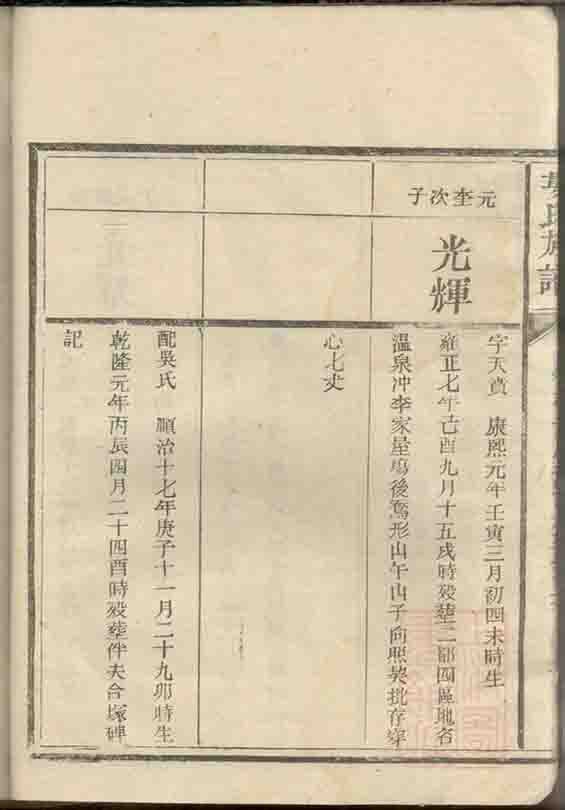 元奎次子
光輝
字天貴　康熙元年壬寅三月初四未時生
雍正七年己酉九月十五戌時歿葬二都四區地名
溫泉冲李家屋塢後鵞形山午山子向照契批存穿
心七丈
配吳氏　順治十七年庚子十一月二十九卯時生
乾隆元年丙辰四月二十四酉時歿葬伴夫合塚碑
記